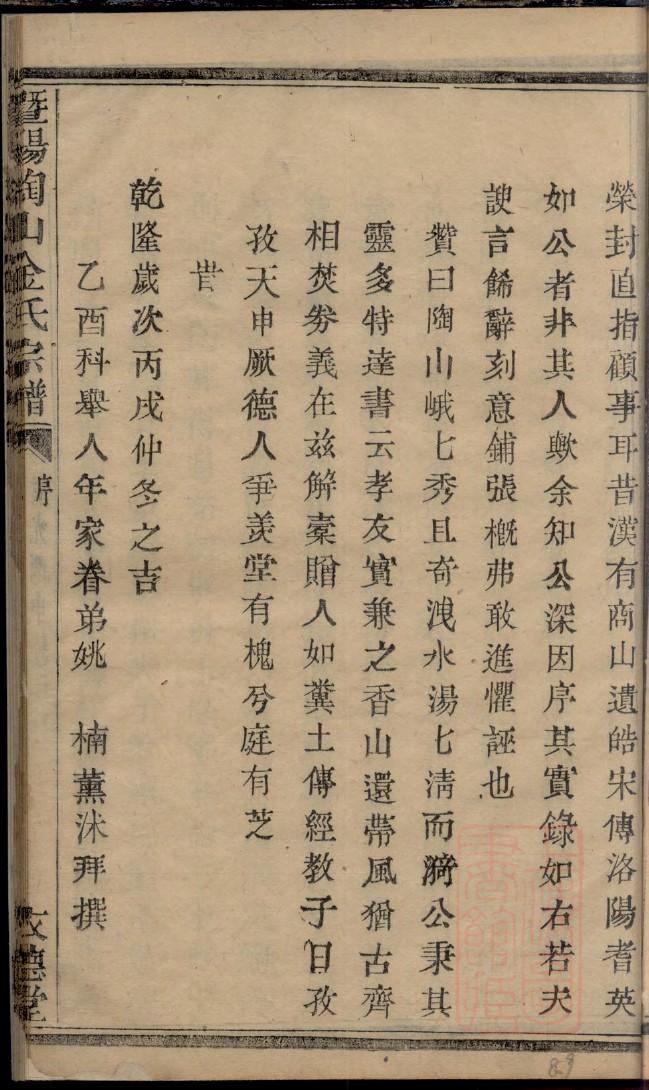 榮封直指顧事耳昔漢有商山遺皓宋傳洛陽耆英
如公者非其人歟余知公深因序其實錄如右若夫
諛言餙辭刻意鋪張槪弗敢進懼誣也
贊曰陶山峨七秀且奇洩水湯七淸而漪公秉其
靈多特達書云孝友實兼之香山還帶風猶古齊
相焚劵義在兹解橐贈人如糞土傳經教子日孜
孜天申厥德人爭羡堂有槐兮庭有芝
旹
乾隆歲次丙戌仲冬之吉
乙酉科舉人年家眷弟姚 楠薰沐拜撰
暨陽陶山金氏宗譜 序 文德堂
89